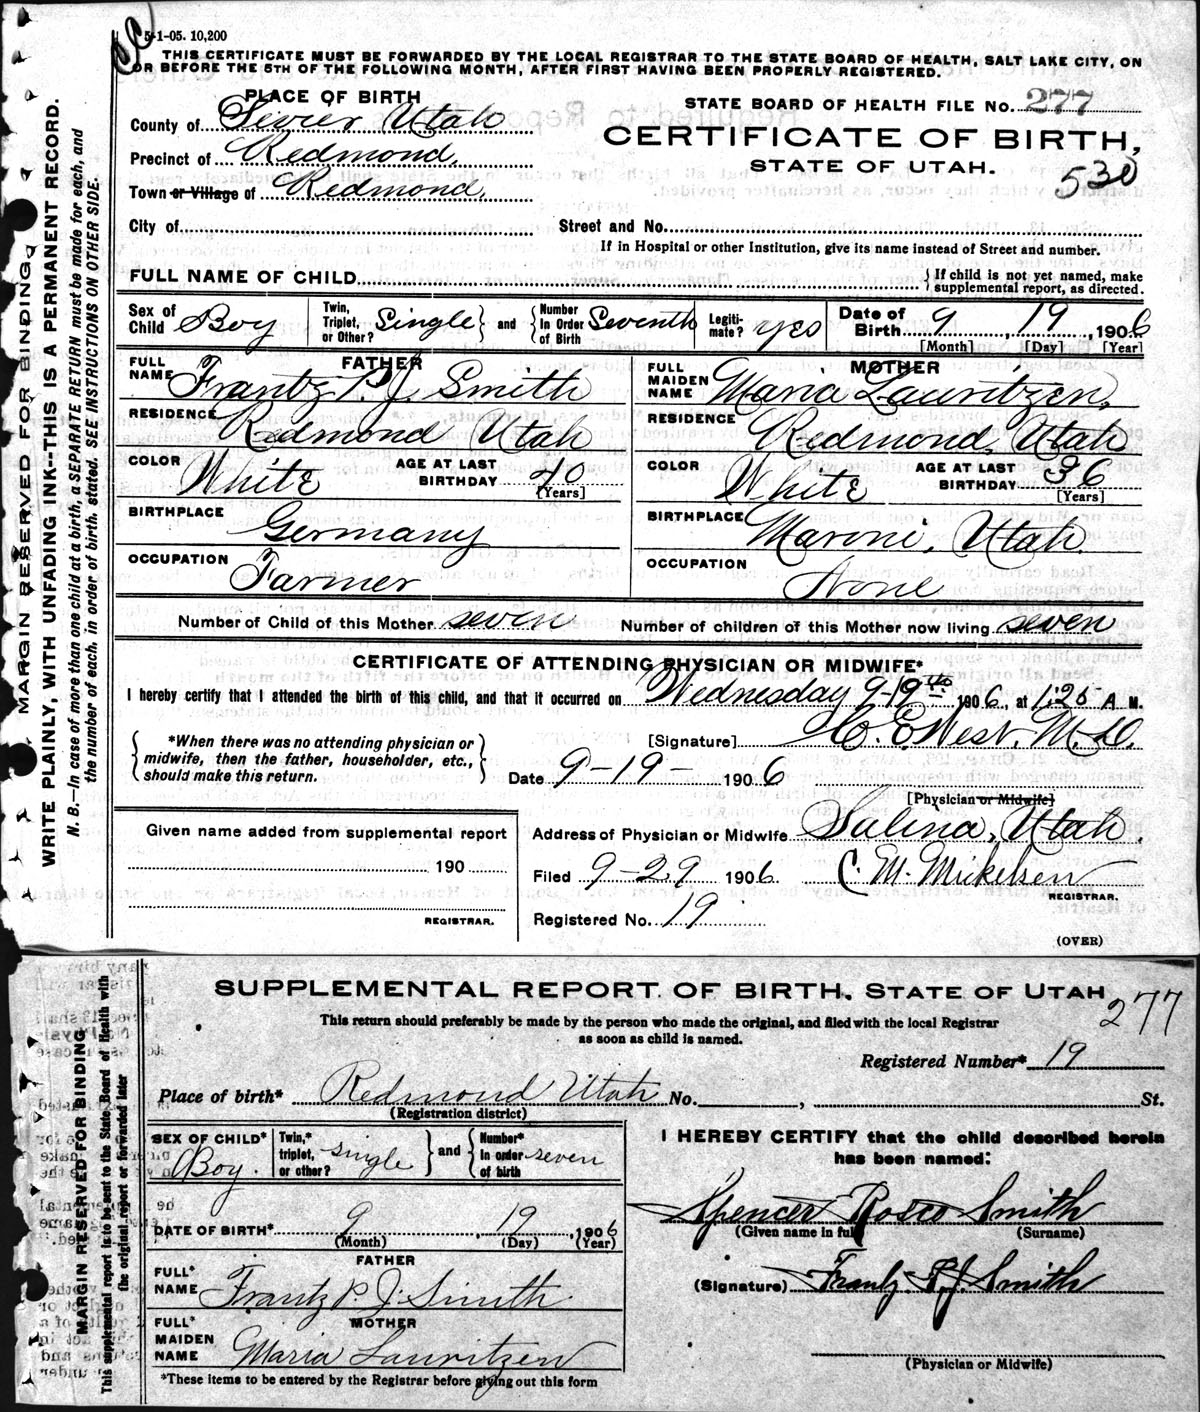 5-1-05. 10,200
THIS CERTIFICATE MUST BE FORWARDED BY THE LOCAL REGISTRAR TO THE STATE BOARD OF HEALTH, SALT LAKE CITY, ON
OR BEFORE THE 5TH OF THE FOLLOWING MONTH, AFTER FIRST HAVING BEEN PROPERLY REGISTERED.
PLACE OF BIRTH
STATE BOARD OF HEALTH FILE NO. 277
County of Sevier Utah
CERTIFICATE OF BIRTH,
Precinct of Redmond,
STATE OF UTAH.
530
Town or Village of Redmond,
City of
Street and No.
If in Hospital or other Institution, give its name instead of Street and number.
FULL NAME OF CHILD
{If child is not yet named, make
supplemental report, as directed.
Sex of Child Boy
Twin, Triplet, or Other? Single } and { Number In Order of Birth Seventh
Legiti-mate? yes
Date of Birth 9 19, 1906
[Month] [Day] [Year]
FATHER
FULL NAME Frantz P. J. Smith
RESIDENCE Redmond Utah
COLOR White AGE AT LAST BIRTHDAY 40
[Years]
BIRTHPLACE Germany
OCCUPATION Farmer
MOTHER
FULL MAIDEN NAME Maria Lauritzen,
RESIDENCE Redmond, Utah
COLOR White AGE AT LAST BIRTHDAY 36
[Years]
BIRTHPLACE Maroni, Utah
OCCUPATION None
Number of Child of this Mother seven Number of children of this Mother now living seven
CERTIFICATE OF ATTENDING PHYSICIAN OR MIDWIFE*
I hereby certify that I attended the birth of this child, and that it occurred on Wednesday 9-19th, 1906, at 1:25 A M.
{*When there was no attending physician or
midwife, then the father, householder, etc.,
should make this return.}
[Signature] C. E. West, M.D.
Date 9-19- 1906
[Physician or Midwife]
Given name added from supplemental report
190
REGISTRAR.
Address of Physician or Midwife Salina, Utah.
Filed 9-29 1906 C. M. Mickelsen
REGISTRAR.
Registered No. 19
(OVER)
MARGIN RESERVED FOR BINDING
WRITE PLAINLY, WITH UNFADING INK--THIS IS A PERMANENT RECORD.
N. B.—In case of more than one child at a birth, a SEPARATE RETURN must be made for each, and
the number of each, in order of birth, stated. SEE INSTRUCTIONS ON OTHER SIDE.
SUPPLEMENTAL REPORT OF BIRTH. STATE OF UTAH
277
This return should preferably be made by the person who made the original, and filed with the local Registrar
as soon as child is named.
Registered Number* 19
Place of birth* Redmond Utah No. , St.
(Registration district)
SEX OF CHILD* Boy.
Twin,* triplet, or other? single } and { Number* in order of birth seven
DATE OF BIRTH* 9 19, 1906
(Month) (Day) (Year)
FATHER
FULL* NAME Frantz P. J. Smith
MOTHER
FULL* MAIDEN NAME Maria Lauritzen
*These items to be entered by the Registrar before giving out this form
I HEREBY CERTIFY that the child described herein
has been named:
Spencer Rosco Smith
(Given name in full) (Surname)
(Signature) Frantz P J Smith
(Physician or Midwife)
MARGIN RESERVED FOR BINDING
This supplemental report is to be sent to the State Board of Health with
the original report or forwarded later